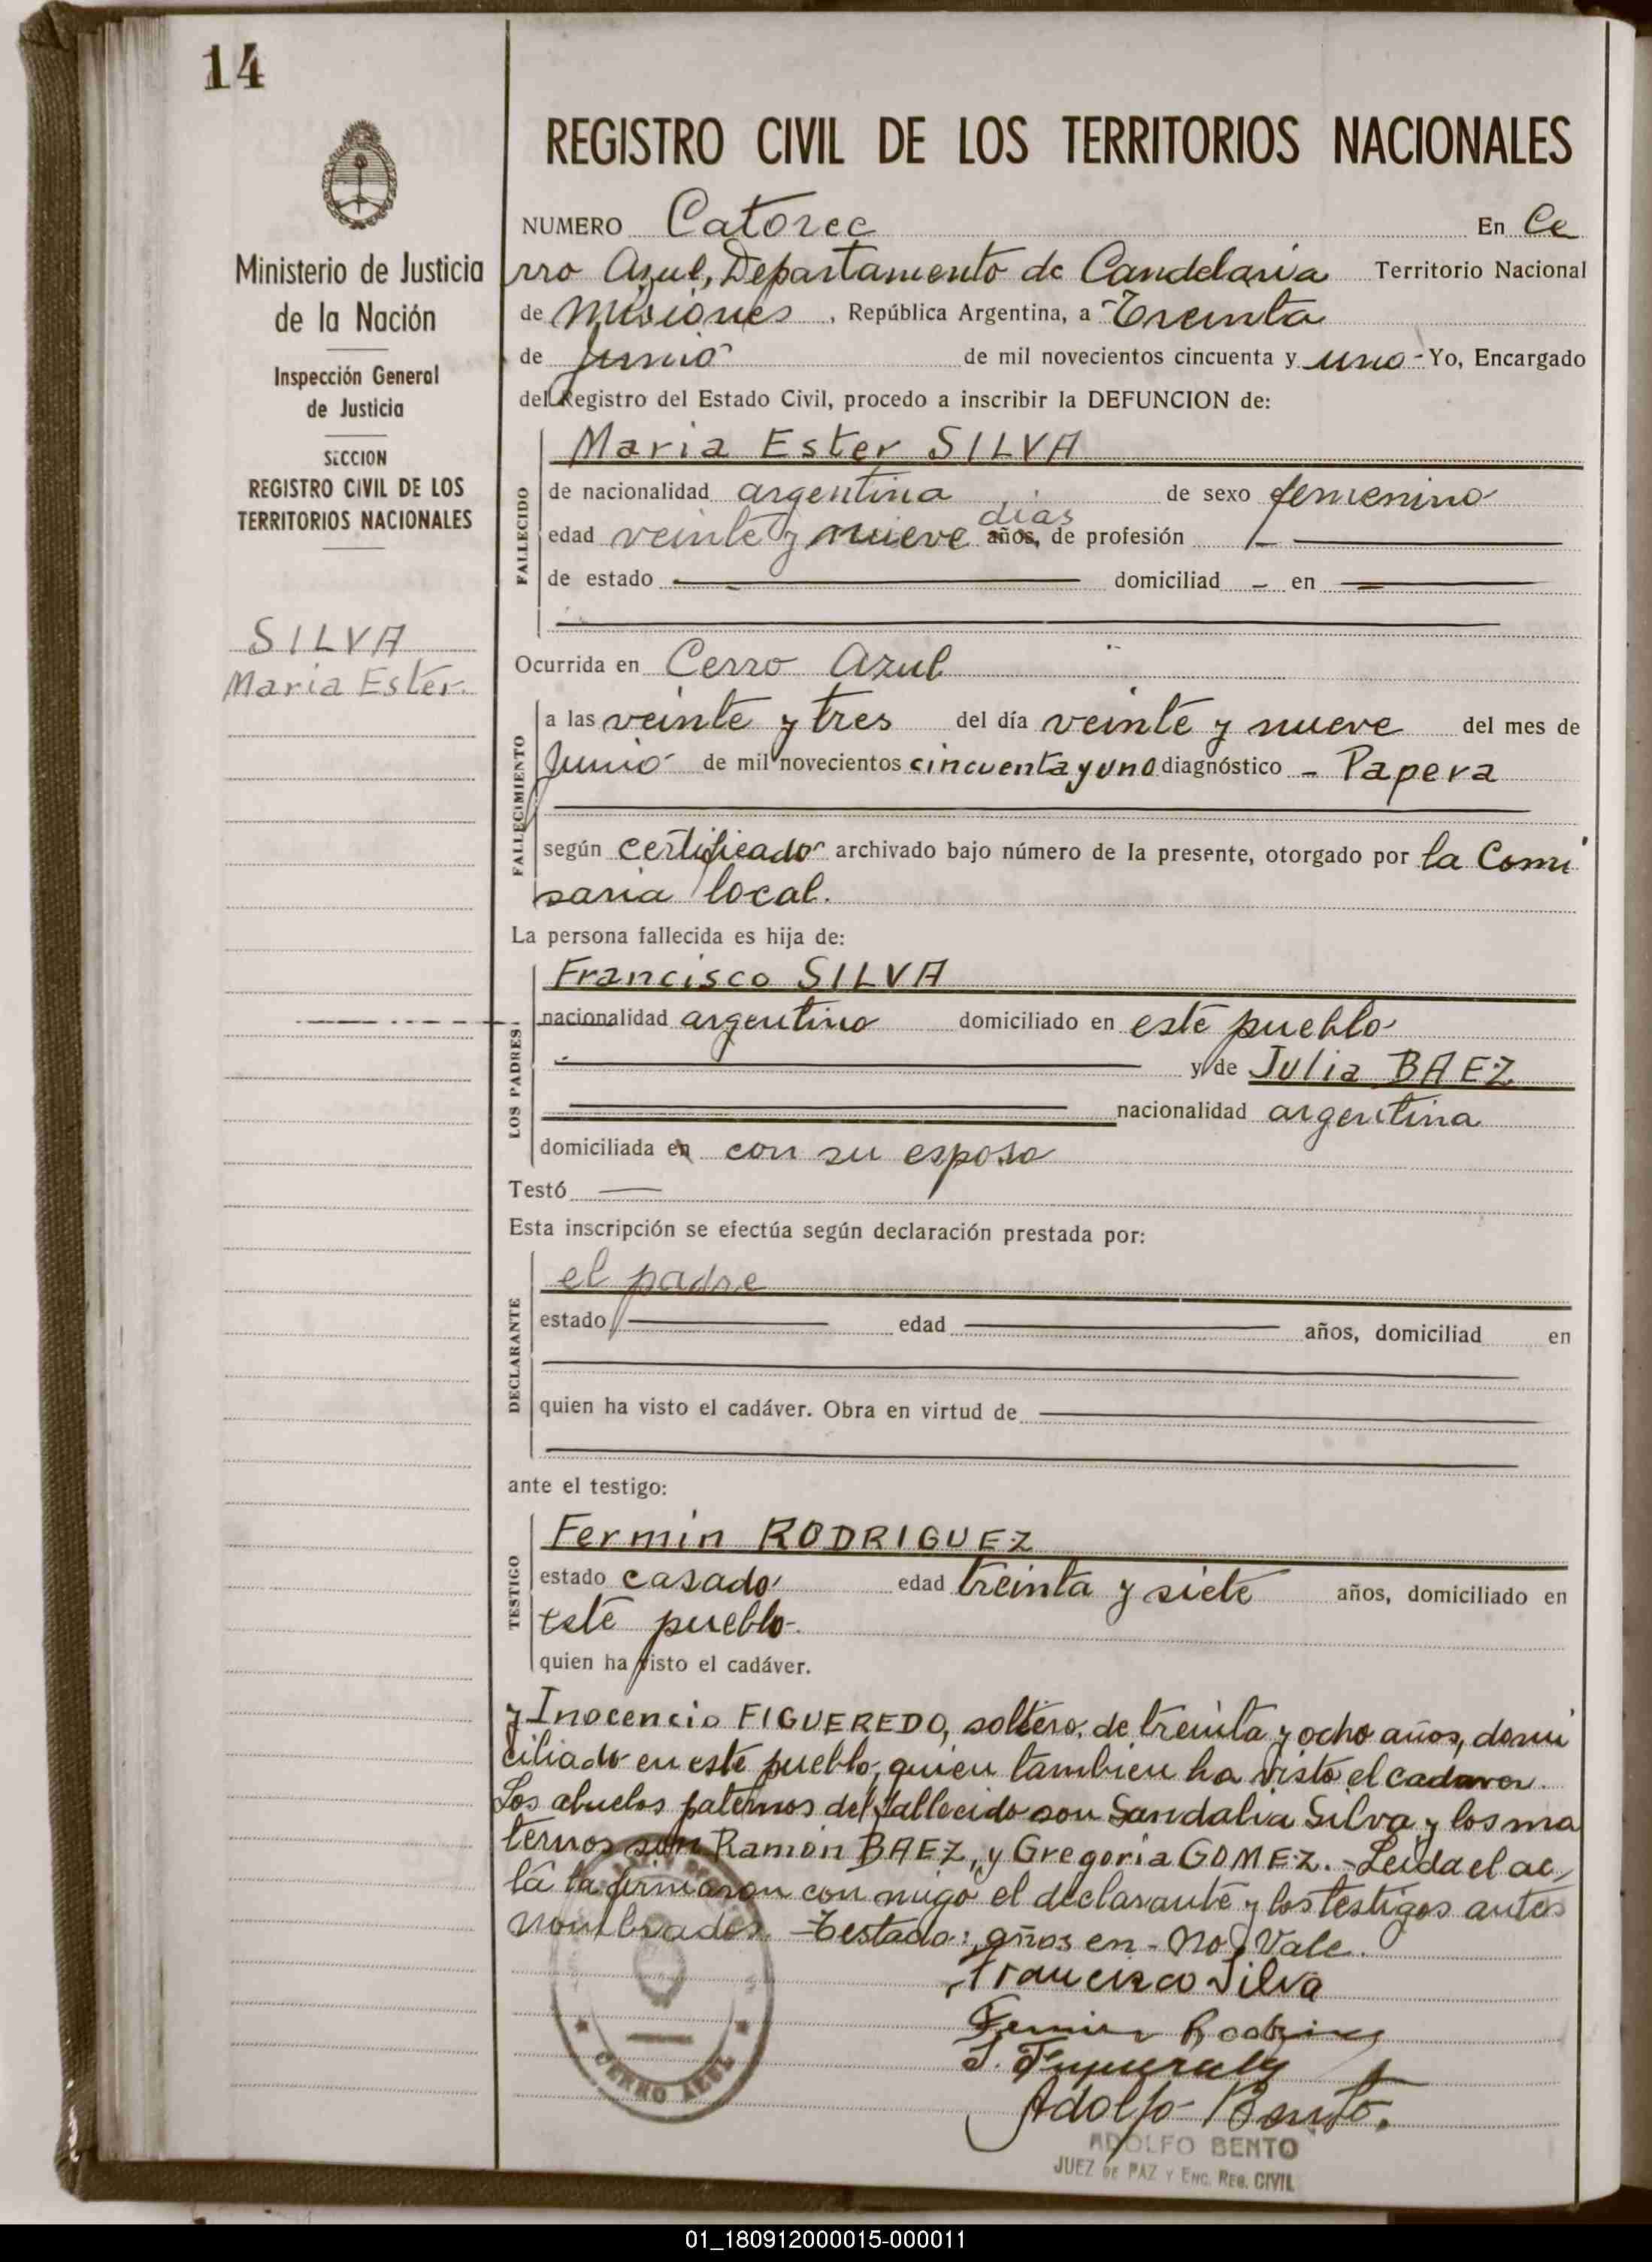 14
Ministerio de Justicia
de la Nación
Inspección General
de Justicia
SECCION
REGISTRO CIVIL DE LOS
TERRITORIOS NACIONALES
SILVA
Maria Ester.
REGISTRO CIVIL DE LOS TERRITORIOS NACIONALES
NUMERO Catorce En Ce
rro Azul, Departamento de Candelaria Territorio Nacional
de Misiones, República Argentina, a Treinta
de Junio de mil novecientos cincuenta y uno - Yo, Encargado
del Registro del Estado Civil, procedo a inscribir la DEFUNCION de:
FALLECIDO
Maria Ester SILVA
de nacionalidad argentina de sexo femenino
dias
edad veinte y nueve años, de profesión
de estado domiciliad - en
Ocurrida en Cerro Azul
FALLECIMIENTO
a las veinte y tres del día veinte y nueve del mes de
Junio de mil novecientos cincuenta y uno diagnóstico - Papera
según certificado archivado bajo número de la presente, otorgado por la Comi
saria local.
La persona fallecida es hija de:
LOS PADRES
Francisco SILVA
nacionalidad argentino domiciliado en este pueblo
y de Julia BAEZ
nacionalidad argentina
domiciliada en con su esposo
Testó
Esta inscripción se efectúa según declaración prestada por:
DECLARANTE
el padre
estado edad años, domiciliad en
quien ha visto el cadáver. Obra en virtud de
ante el testigo:
TESTIGO
Fermin RODRIGUEZ
estado casado edad treinta y siete años, domiciliado en
este pueblo-
quien ha visto el cadáver.
y Inocencio FIGUEREDO, soltero, de treinta y ocho años, domi
ciliado en este pueblo, quien tambien ha visto el cadaver.
Los abuelos paternos del fallecido son Sandalia Silva y los ma
ternos son Ramón BAEZ, y Gregoria GOMEZ. - Leida el ac
ta la firmaron con migo el declarante y los testigos antes
nombrados. - Testado: años en - No Vale.
Francisco Silva
Fermin Rodrig
Adolfo Bento.
CERRO AZUL
ADOLFO BENTO
JUEZ DE PAZ Y ENC. REG. CIVIL
01_180912000015-000011